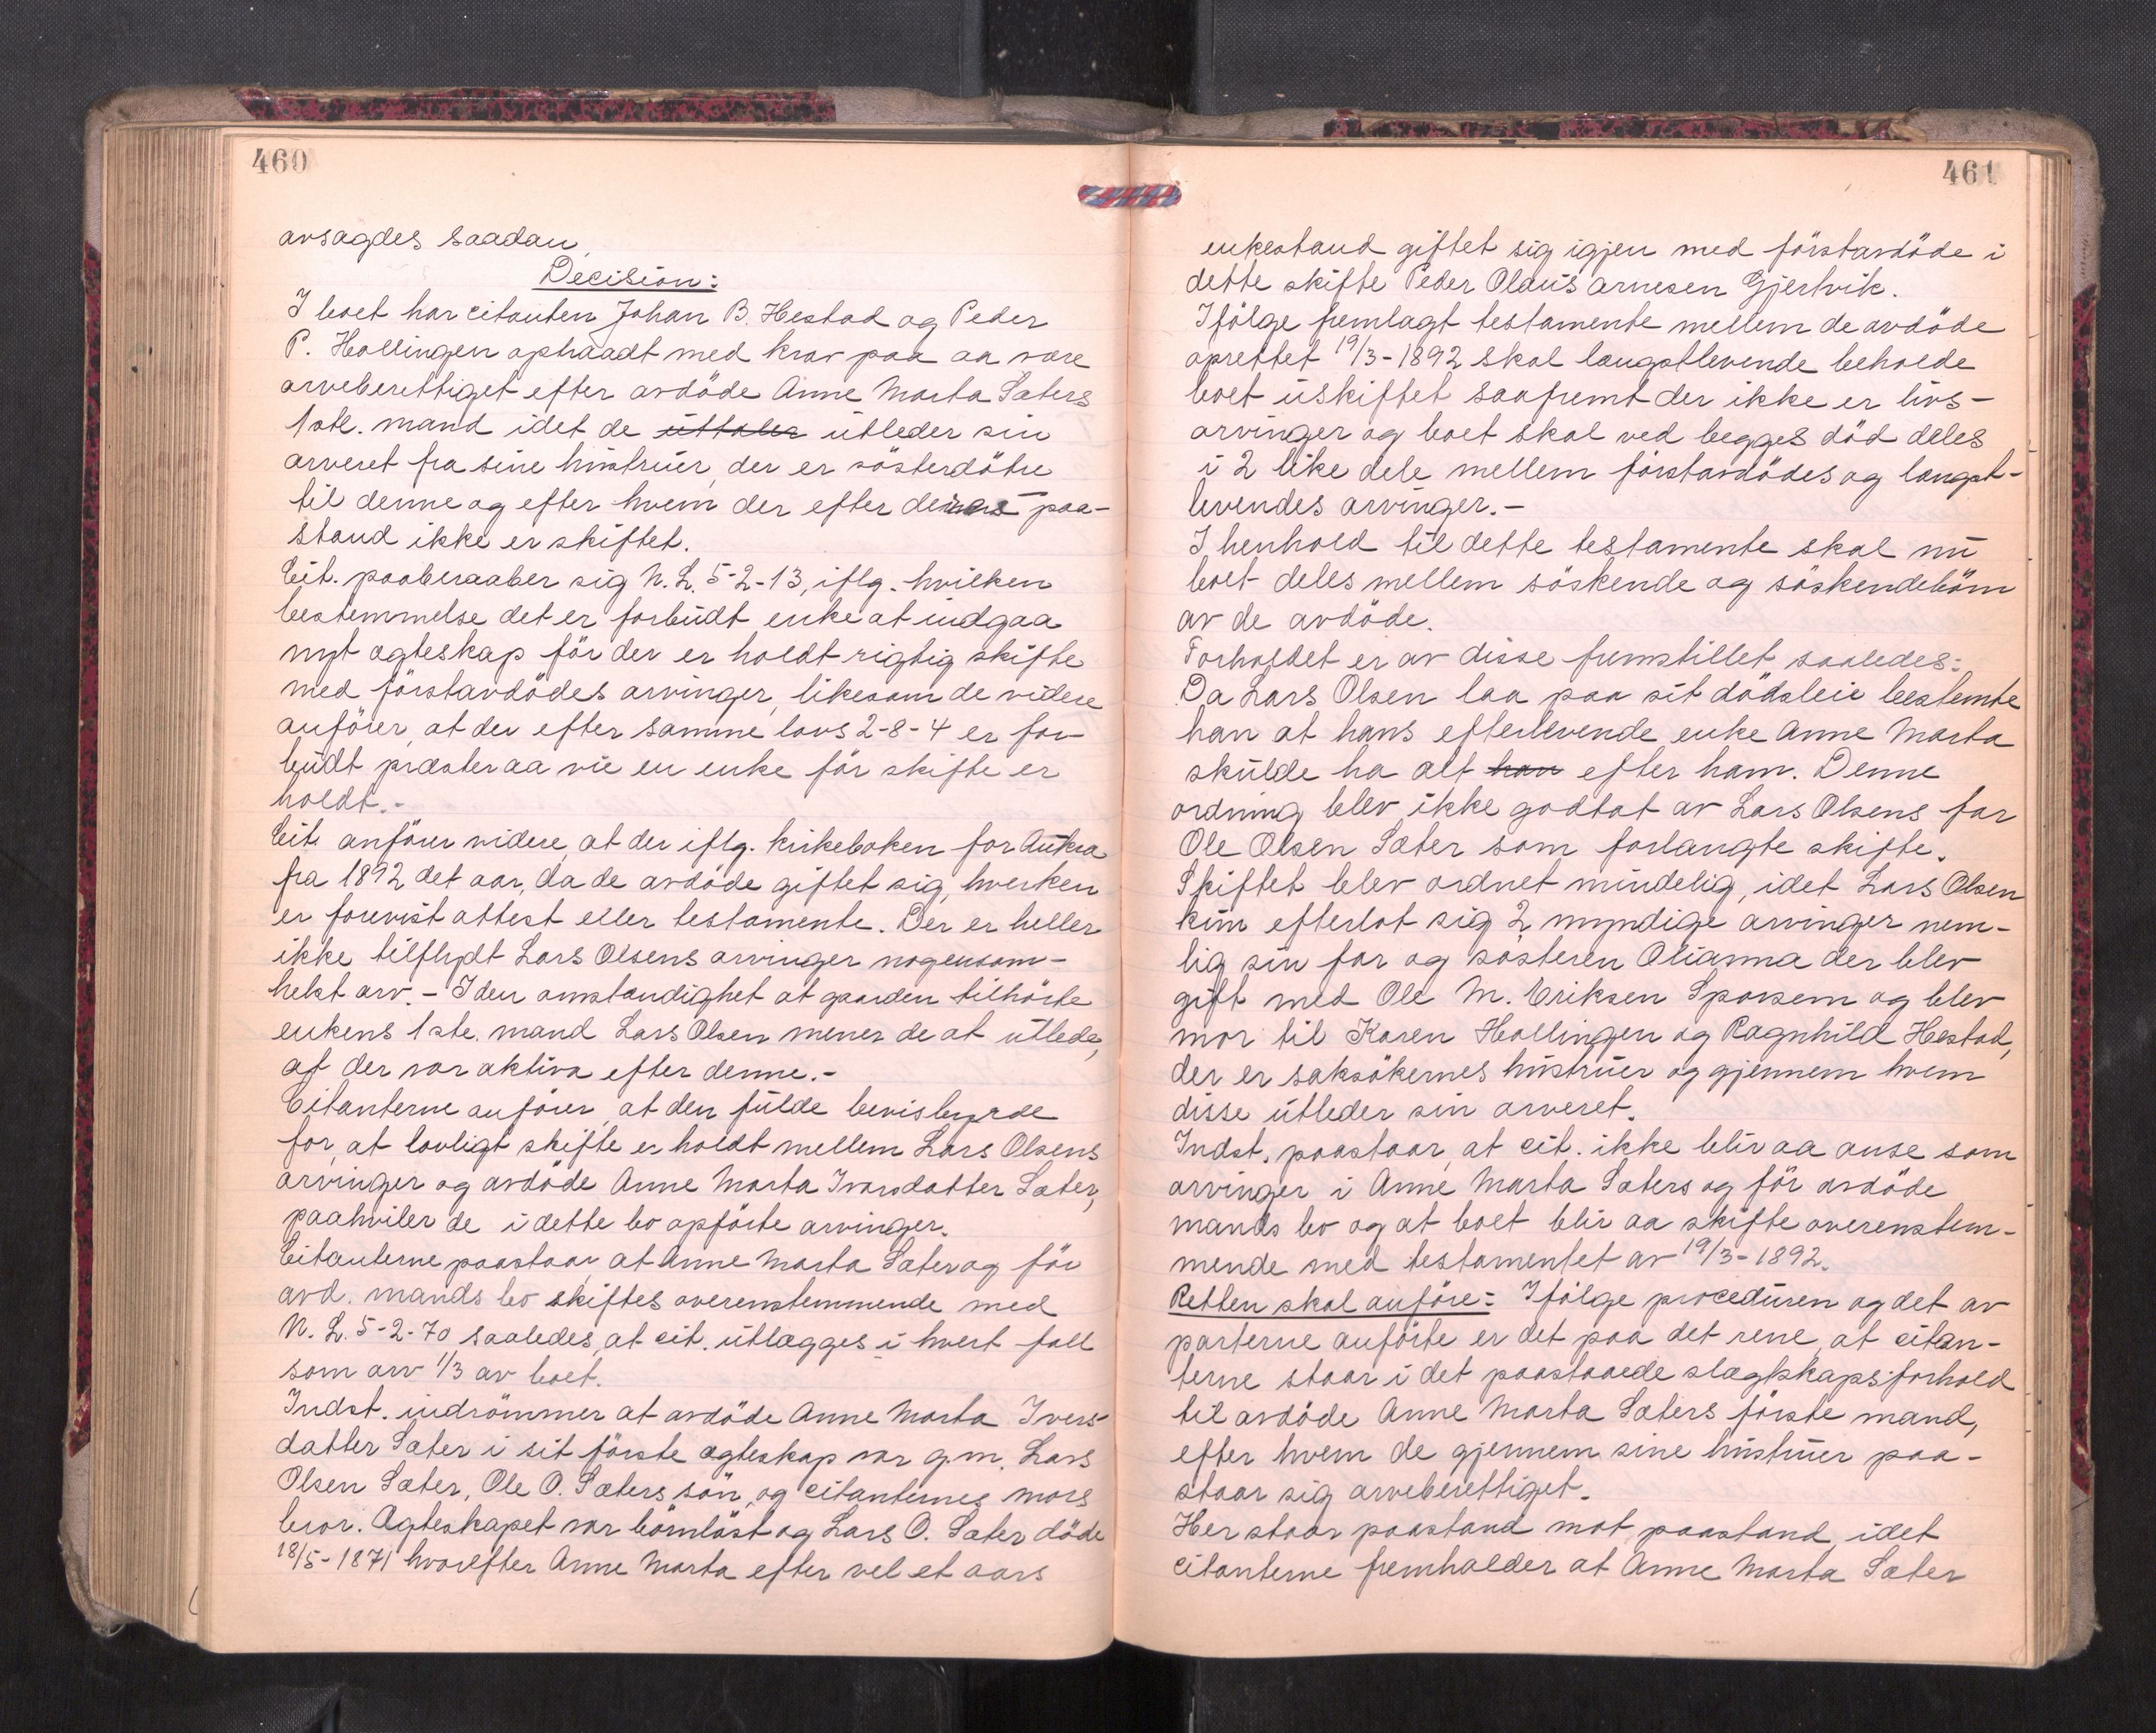 460
avsagdes saadan
Decision:
I boet har citanten Johan B. Hestad og Peder
P. Hollingen optraadt med krav paa aa være
arveberettiget efter avdöde Anne Marta Sæters
1ste. mand idet de uttaler utleder sin
arveret fra sine hustruer, der er sösterdötre
til denne og efter hvem der efter deres paa-
stand ikke er skiftet.
Cit. paaberaaber sig N.L. 5-2-13, iflg. hvilken
bestemmelse det er forbudt enke at indgaa
nyt ægteskap för der er holdt rigtig skifte
med förstavdödes arvinger, likesom de videre
anförer, at der efter samme lovs 2-8-4 er for-
budt præster aa vie en enke för skifte er
holdt.-
Cit. anförer videre, at der iflg. kirkeboken for Aukra
fra 1892 det aar, da de avdöde giftet sig, hverken
er forevist attest eller testamente. Der er heller
ikke tilflydt Lars Olsens arvinger nogensom-
helst arv.- I den omstændighet at gaarden tilhörte
enkens 1ste. mand Lars Olsen mener de at utlede,
at der var aktiva efter denne.-
Citanterne anförer, at den fulde bevisbyrde
for, at lovligt skifte er holdt mellem Lars Olsens
arvinger og avdöde Anne Marta Ivarsdatter Sæter,
paahviler de i dette bo opförte arvinger.
Citanterne paastaar, at Anne Marta Sæter og för
avd. mands bo skiftes overenstemmende med
N.L. 5-2-70 saaledes, at cit. utlægges i hvert fall
som arv 1/3 av boet.
Indst. indrömmer at avdöde Anne Marta Ivers-
datter Sæter i sit förste ægteskap var g.m. Lars
Olsen Sæter, Ole O. Sæters sön, og citanternes mors
bror. Ægteskapet var börnlöst og Lars O. Sæter döde
18/5-1871 hvorefter Anne Marta efter vel et aars
461
enkestand giftet sig igjen med förstavdöde i
dette skifte Peder Olaus Arnesen Gjertvik.
Ifölge fremlagt testamente mellem de avdöde
oprettet 19/3-1892 skal længstlevende beholde
boet uskiftet saafremt der ikke er livs-
arvinger og boet skal ved begges död deles
i 2 like dele mellem förstavdödes og længst-
levendes arvinger.-
I henhold til dette testamente skal nu
boet deles mellem söskende og söskendebörn
av de avdöde.
Forholdet er av disse fremstillet saaledes:
Da Lars Olsen laa paa sit dödsleie bestemte
han at hans efterlevende enke Anne Marta
skulde ha alt han efter ham. Denne
ordning blev ikke godtat av Lars Olsens far
Ole Olsen Sæter som forlangte skifte.
Skiftet blev ordnet mindelig, idet Lars Olsen
kun efterlot sig 2 myndige arvinger nem-
lig sin far og sösteren Olianna der blev
gift med Ole M. Eriksen Sporsem og blev
mor til Karen Hollingen og Ragnhild Hestad,
der er saksökernes hustruer og gjennem hvem
disse utleder sin arveret.
Indst. paastaar, at cit. ikke blir aa anse som
arvinger i Anne Marta Sæters og för avdöde
mands bo og at boet blir aa skifte overenstem-
mende med testamentet av 19/3-1892.
Retten skal anföre: Ifölge proceduren og det av
parterne anförte er det paa det rene, at citan-
terne staar i det paastaaede slægtskapsforhold
til avdöde Anne Marta Sæters förste mand,
efter hvem de gjennem sine hustruer paa-
staar sig arveberettiget.
Her staar paastand mot paastand, idet
citanterne fremholder at Anne Marta Sæter